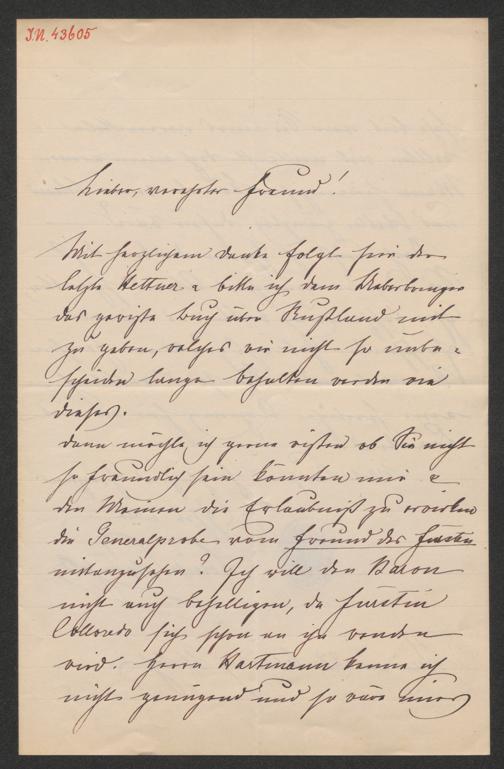 I.N. 43605
Lieber, verehrter Freund!
Mit herzlichem Danke folgt hier der
letzte Hettner u bitte ich dem Ueberbringer
das gewisse Buch über Rußland mit
zu geben, welches wir nicht so unbe-
scheiden lange behalten werden wie
dieses.
Dann möchte ich gerne wissen ob Sie nicht
so freundlich sein könnten mir u
den Meinen die Erlaubniß zu erwirken
die Generalprobe vom Freund des Fürsten
mitanzusehen? Ich will den Baron
nicht auch behelligen, da Fürstin
Colloredo sich schon an ihn wenden
wird. Herrn Hartmann kenne ich
nicht genügend und so wäre mir